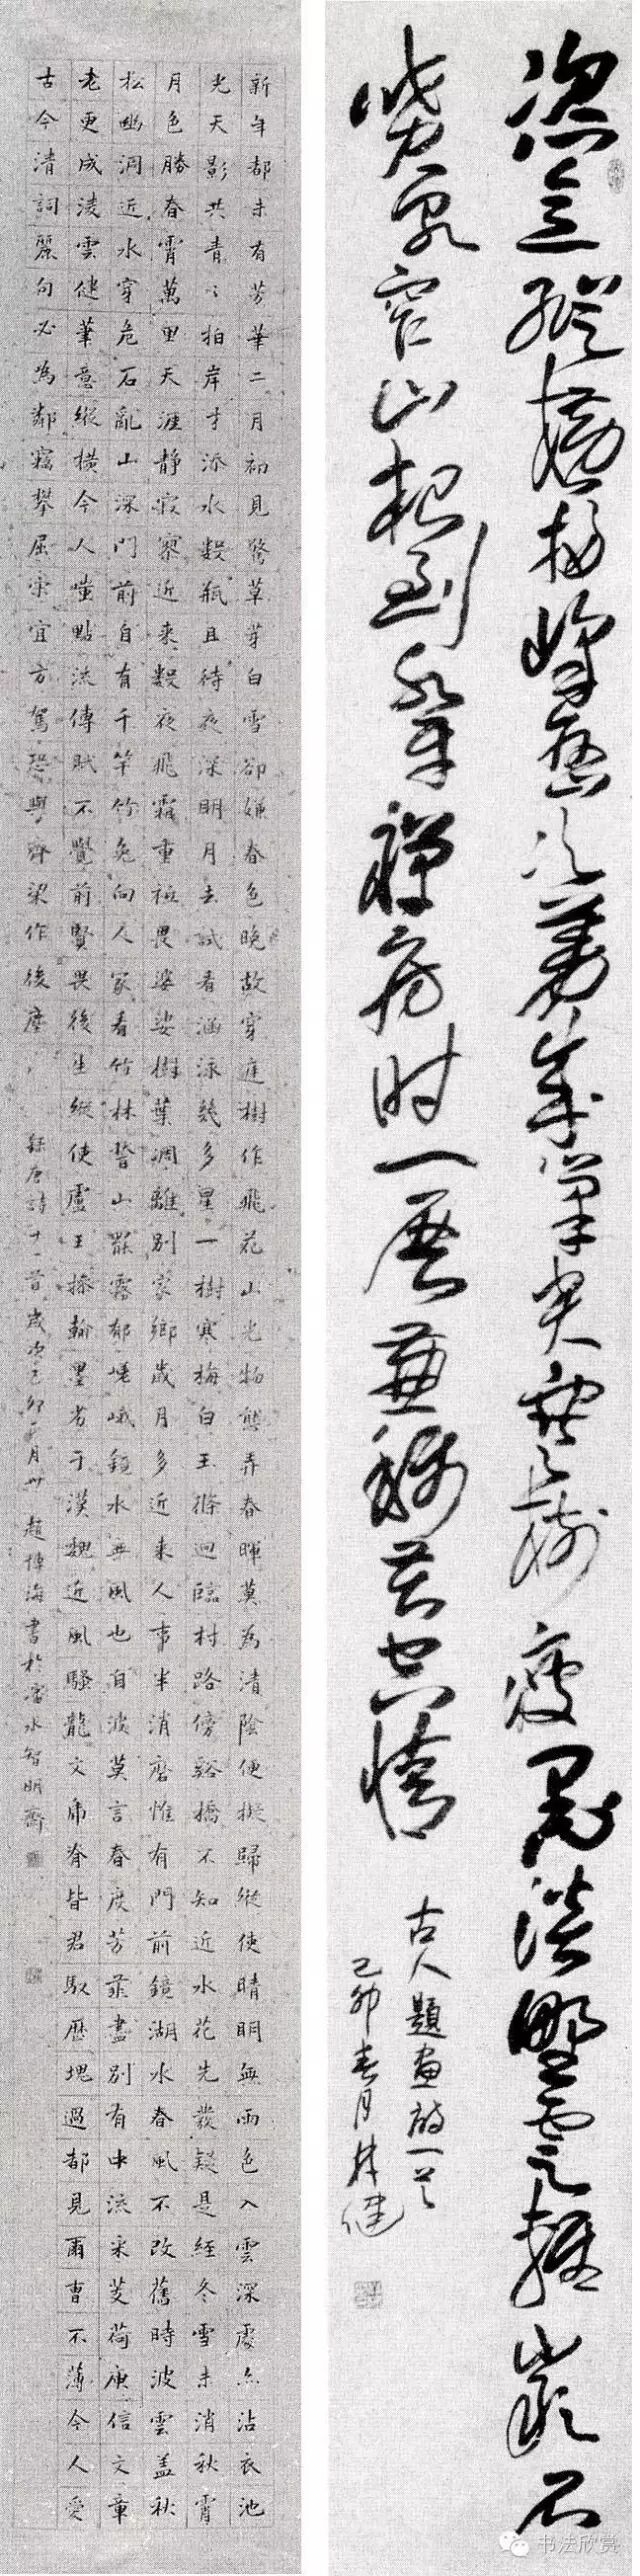 恣意縱橫掃峰巒次第成筆尖寒樹瘦墨淡野雲輕岩石
噴泉窄山根到水平禪房時一展兼稱苦空情
古人題畫詩一首
己卯春月林健
新年都未有芳華二月初見驚草芽白雪卻嫌春色晚故穿庭樹作飛花山光物態弄春暉莫為清陰便擬歸縱使晴明無雨色入雲深處亦沾衣池
光天影共青々拍岸才添水數瓶且待夜深明月去試看涵泳幾多星一樹寒梅白玉條迥臨村路傍谿橋不知近水花先發疑是經冬雪未消秋霄
月色勝春霄萬里天涯靜寂寥近來數夜飛霜重秖畏婆娑樹葉凋離別家鄉歲月多近來人事半消磨惟有門前鏡湖水春風不改舊時波雲蓋秋
松幽洞近水穿危石亂山深門前自有千竿竹免向人家看竹林誓山罷霧郁嵯峨鏡水無風也自波莫言春度芳菲盡別有中流采芰荷庾信文章
老更成淩雲健筆意縱橫今人嗤點流傳賦不覺前賢畏後生縱使盧王操翰墨劣于漢魏近風騷龍文虎脊皆君馭歷塊過都見爾曹不薄今人愛
古今清詞麗句必為鄰竊攀屈宋宜方駕恐與齊梁作後塵
錄唐詩十一首歲次己卯正月卅趙傳海書於水智明齋
书法欣赏